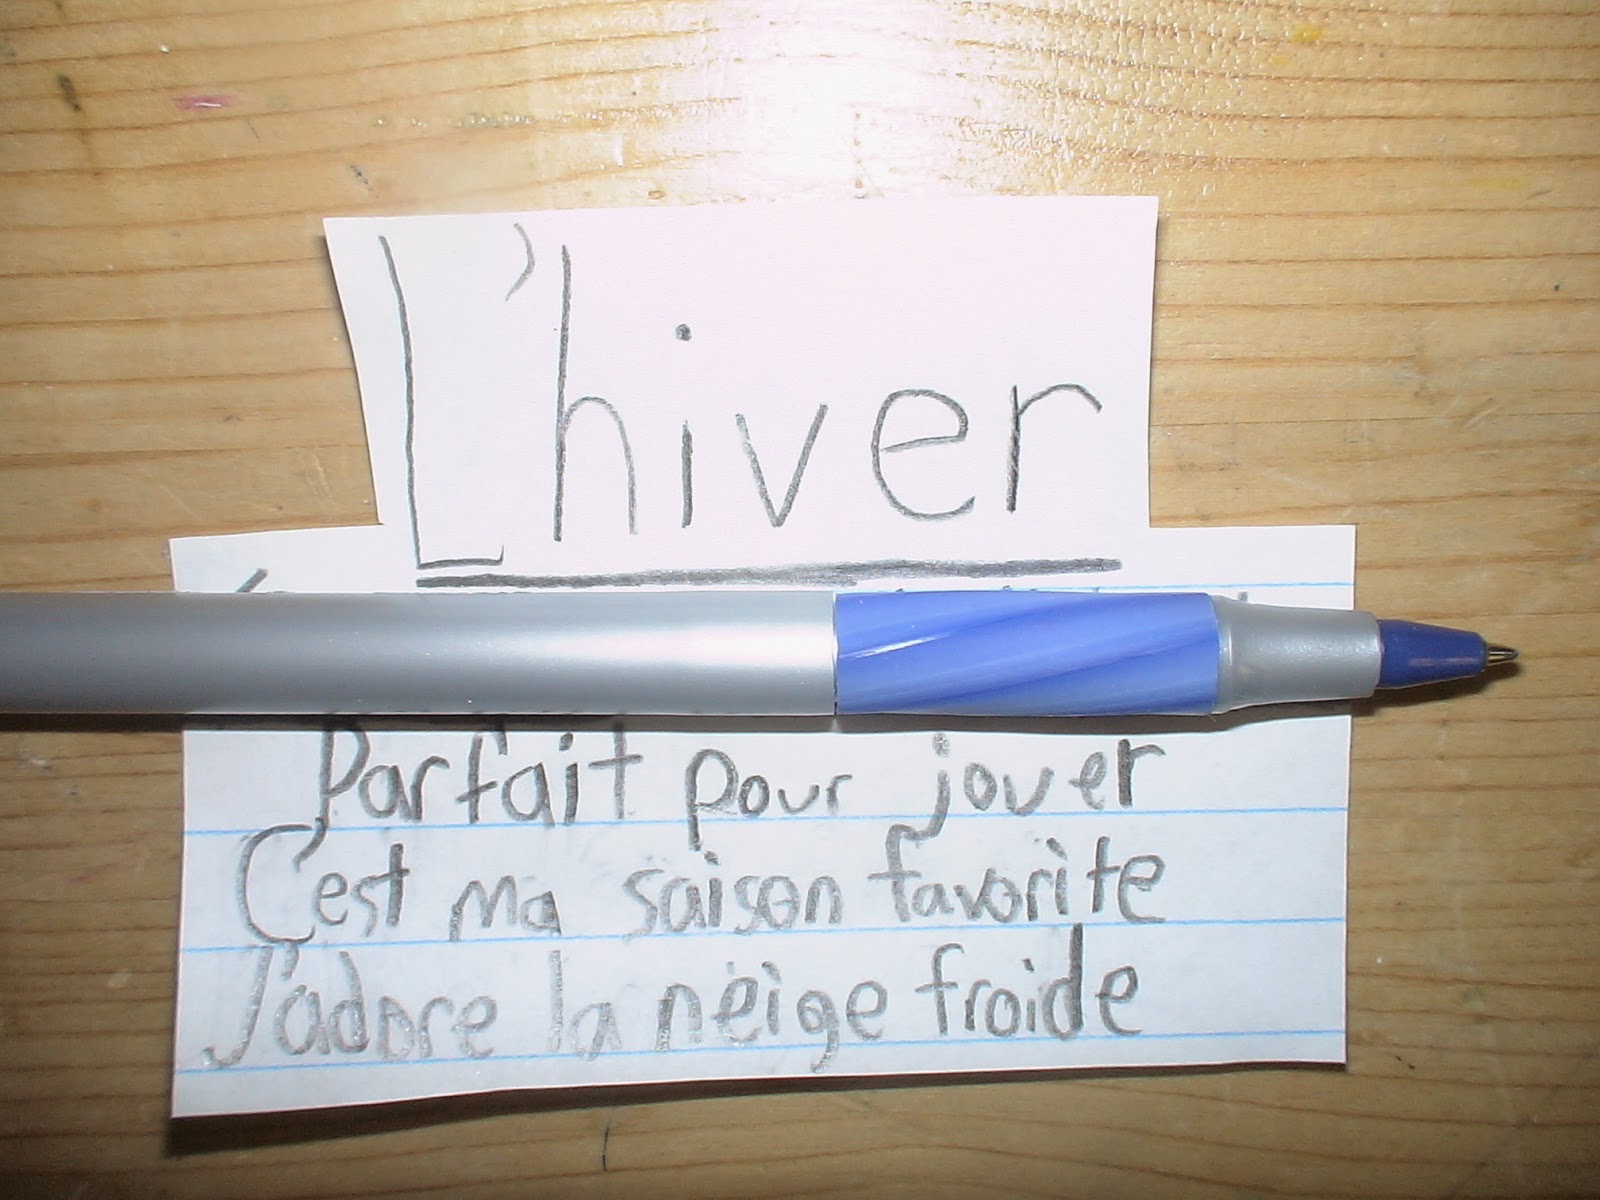 L'hiver
Parfait pour jouer
C'est ma saison favorite
J'adore la neige froide